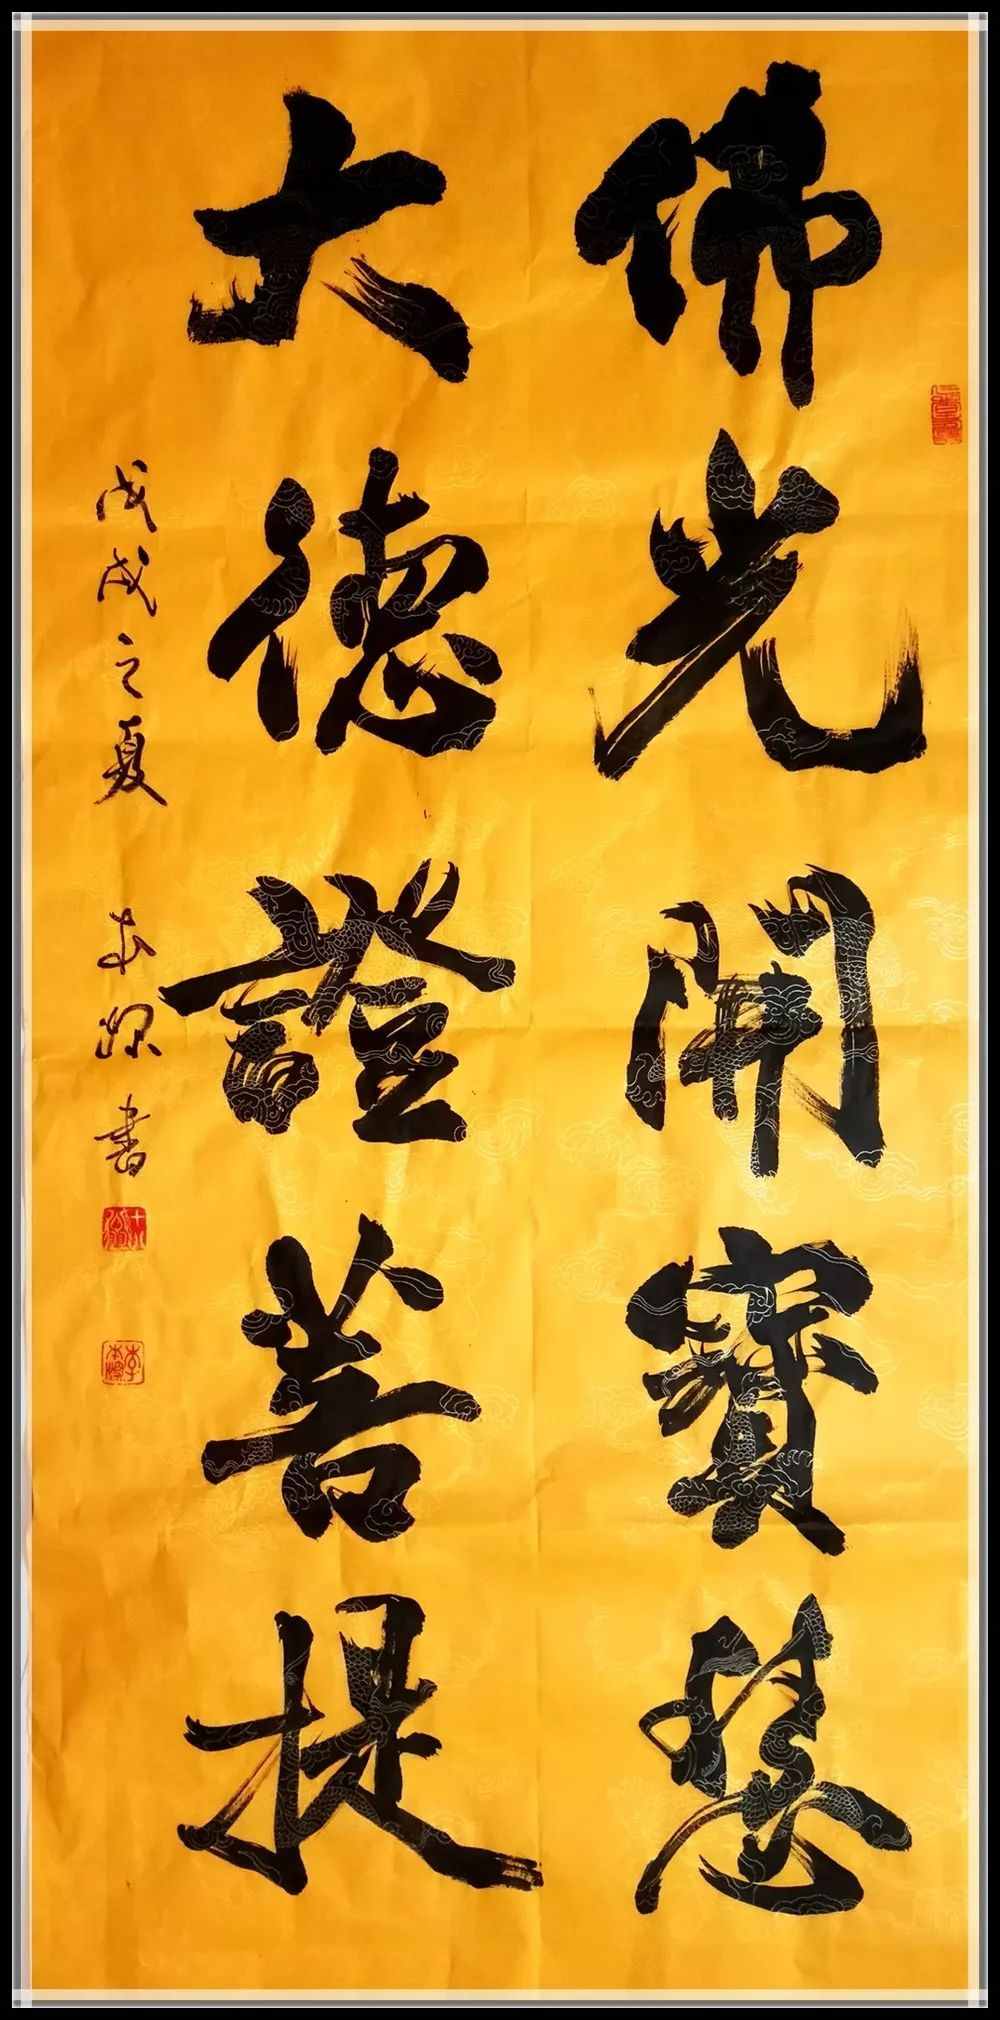 佛光開寶慧
大德證菩提
戊戌之夏 本 書